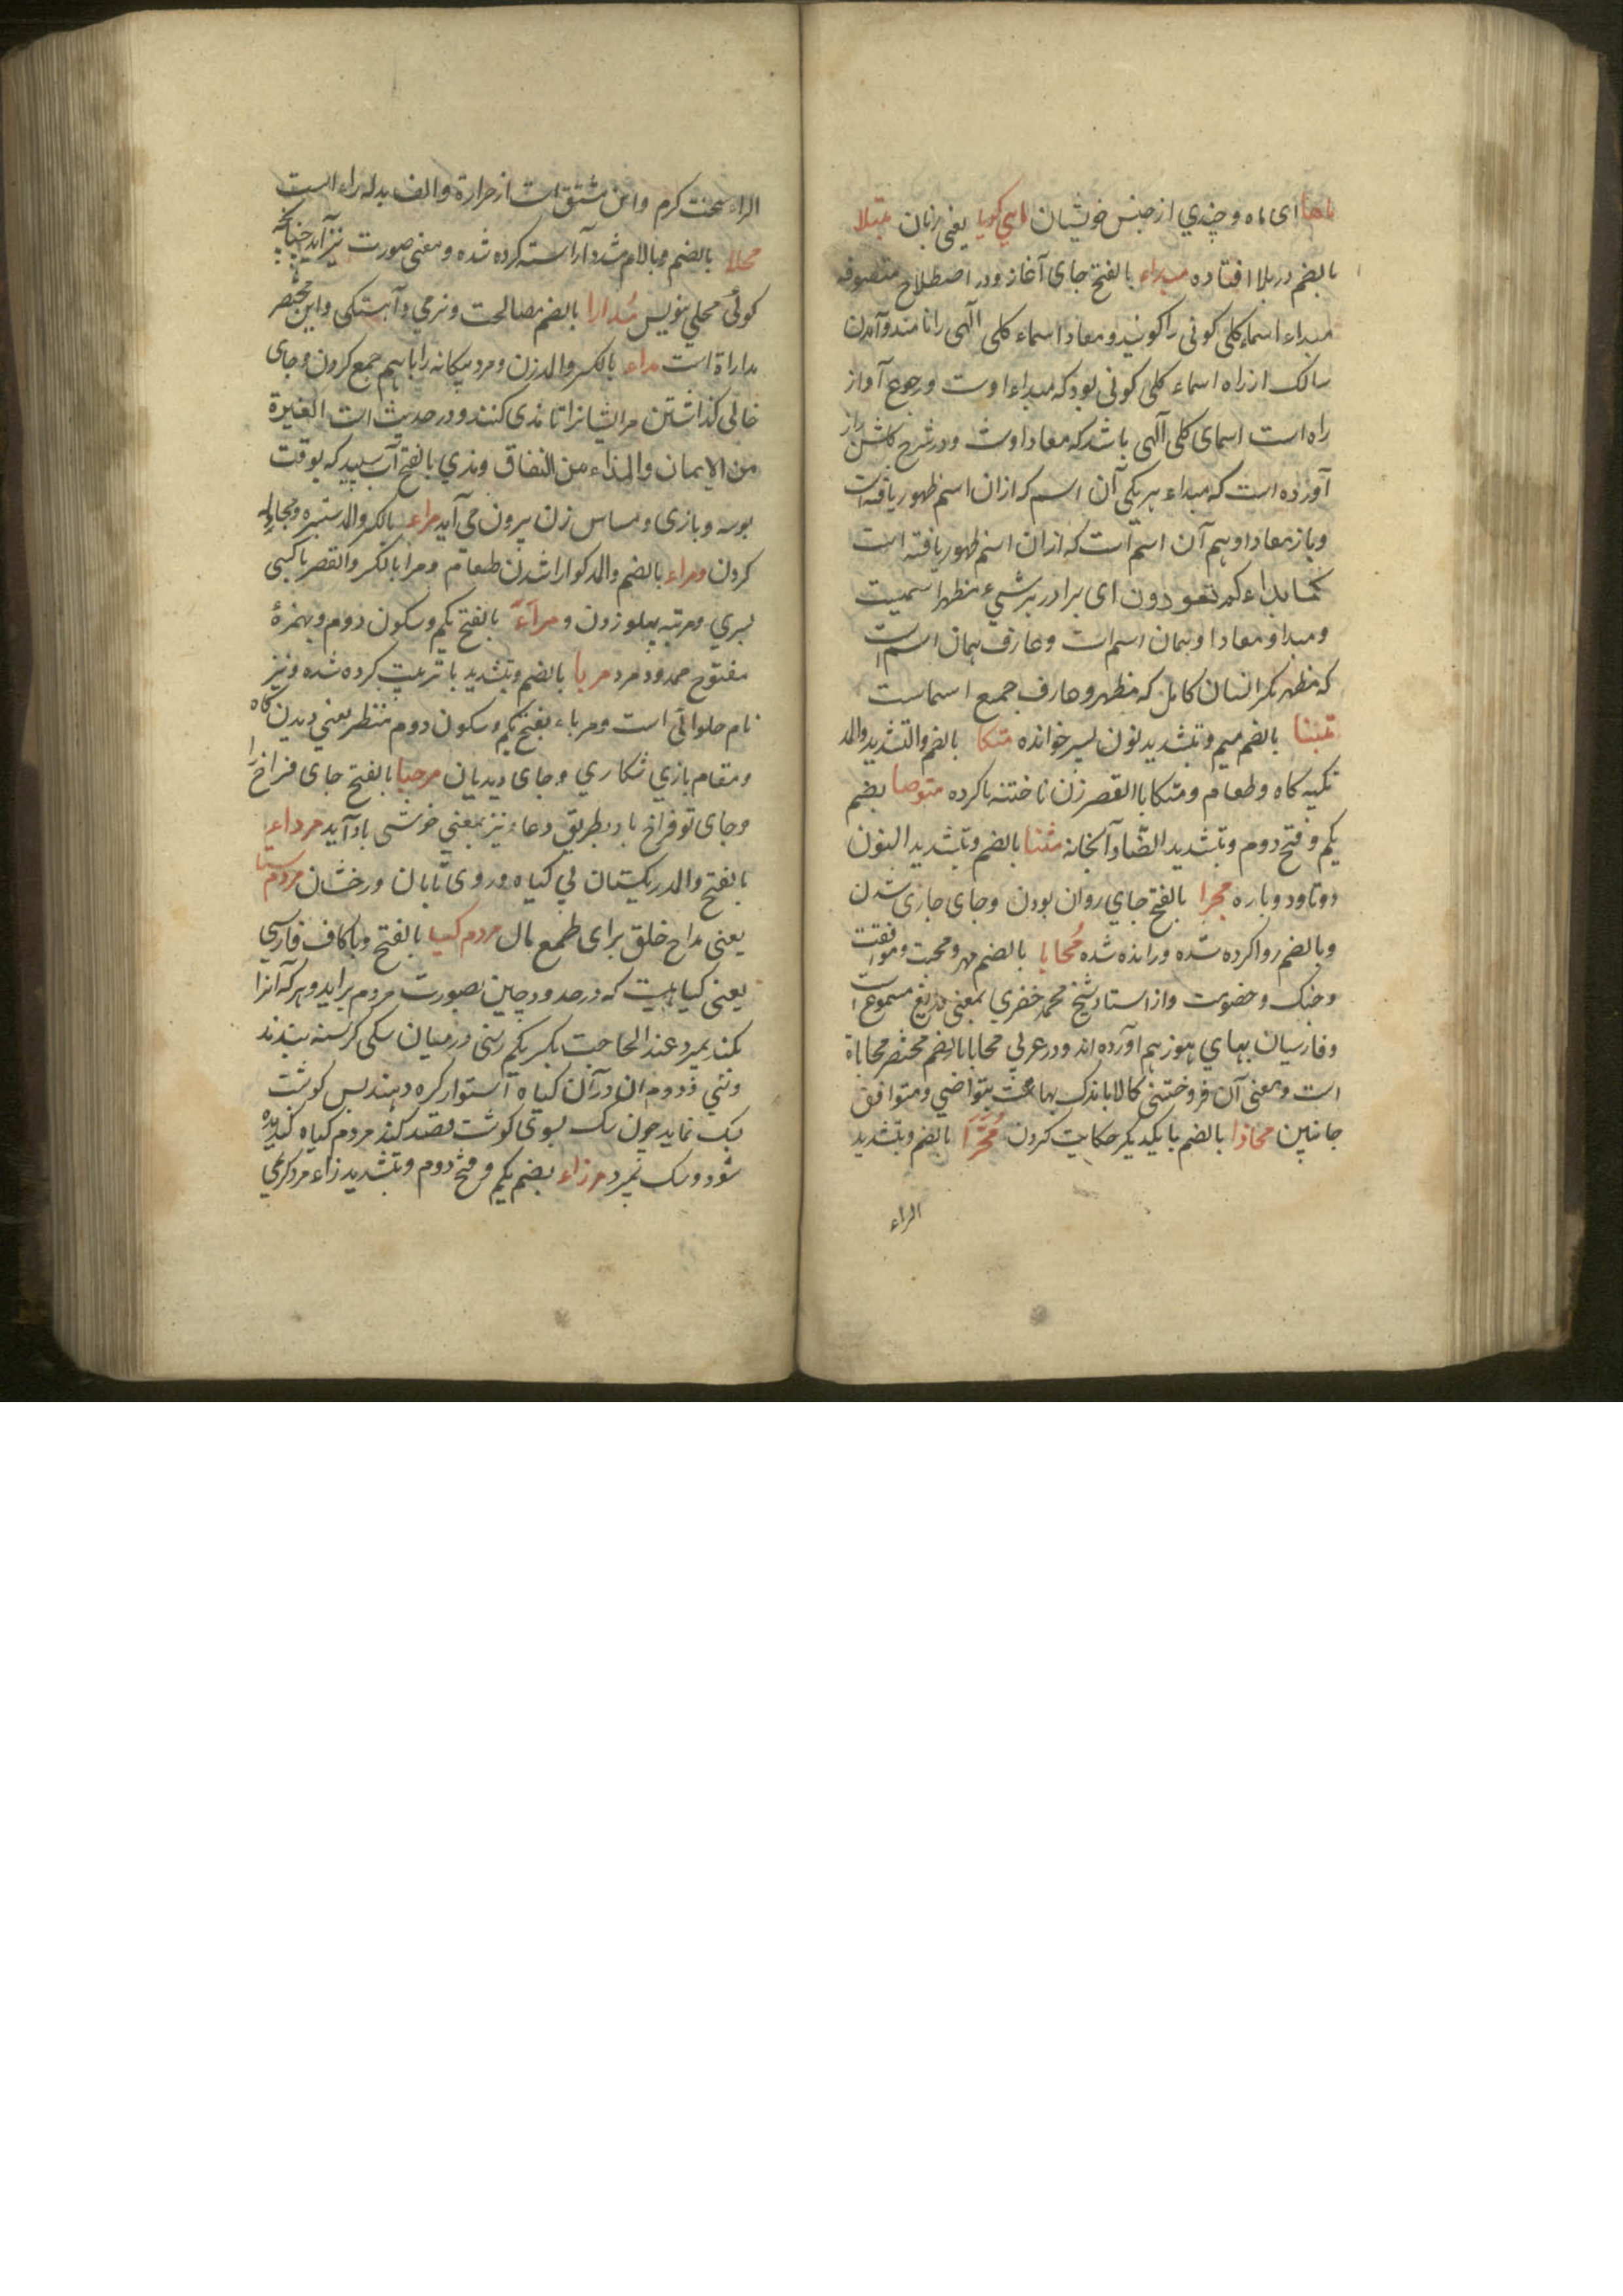 ماها ای ماه و چیزی از جنس خویشان ماهی کویا یعنی زبان مبتلا
بالضم در بلا افتاده مبداء بالفتح جای آغاز و در اصطلاح متصوفه
مبداء اسماء کلی کونی را کویند و معاد اسماء کلی الهی را نامند و آمدن
سالک از راه اسماء کلی کونی بود که مبداء اوست و رجوع او از
راه است اسمای کلی الهی باشد که معاد اوست و در شرح کلشن راز
آورده است که مبداء هر یکی آن اسم که ازان اسم ظهور یافته است
و باز معاد او هم آن اسم است که ازان اسم ظهور یافته است
کما بداءکم تعودون ای برادر هر شیء مظهر اسمیست
و مبدا و معاد او همان اسم است و عارف همان اسم است
که مظهر مکر انسان کامل که مظهر و عارف جمیع اسماست
متبنا بالضم میم و تشدید نون پسر خوانده متکا بالضم والتشدید والمد
تکیه کاه و طعام و متکا باالقصر زن ناختنه ناکرده متوضا بضم
یکم و فتح دوم و تشدید الضاد آبخانه مثنا بالضم و تشدید النون
دوتا و دوباره مجرا بالفتح جای روان بودن و جای جاری شدن
و بالضم روا کرده شده و رانده شده محابا بالضم مهر و محبت و موافقت
و جنک و خصومت و از استاد شیخ محمد خضری بمعنی دریغ مسموع است
و فارسیان بهای هوز هم آورده اند و در عربی محابا بالضم مختصر محاباة
است و بمعنی آن فروختن کالا باندک بها بحث بتواضی و متوافق
جانبین محاذا بالضم با یکدیکر حکایت کردن محرّا بالضم و بتشدید
الراء
الراء سخت کرم و این مشتق است از حرارة و الف بدله راء است
محلا بالضم و بالام مشدد آراسته کرده شده و بمعنی صورت نیز آید چنانکه
کوئی محلی بنویس مُدارا بالضم مصالحت و نرمی و آهستکی و این مختصر
مداراة است مذاء بالکسر والمد زن و مرد بیکانه را باهم جمع کردن و جای
خالی کذاشتن مرایشانرا تا مذی کنند و در حدیث است الغیرة
من الایمان والمذاء من النفاق و مذی بالفتح آب سپید که بوقت
بوسه و بازی و مساس زن بیرون می آید مراء بالکسر والمد ستیزه و مجادله
کردن و مراء بالضم والمد کوارا شدن طعام و مرا بالکسر والقصر با کسی
بسری و مرتبه پهلو زدن و مرآءً بالفتح یکم و سکون دوم و بهمزهٔ
مفتوح ممدود مرد مربا بالضم و بتشدید با تربیت کرده شده و نیز
نام حلوائی است و مرباء بفتح یکم و سکون دوم منتظر یعنی دیدن کاه
و مقام بازی شکاری و جای دیدبان مرحبا بالفتح جای فراخ را
و جای تو فراخ باد بطریق دعا و نیز بمعنی خوشی باد آید مرداء
بالفتح والمد ریکستان بی کیاه و روی تابان و رخشان مردم ستا
یعنی مداح خلق برای طمع مال مردم کیا بالفتح و با کاف فارسی
یعنی کیاهیست که در حدود چین بصورت مردم براید و هر که آنرا
بکند بمیرد عند الحاجت بکسر یکم رسنی در میان سکی کرسنه ببندند
و نئی ذدوم ان درآن کیاه استوار کره دهند پس کوشت
بک نماید چون سک بسوی کوشت قصد کند مردم کیاه کندیده
شود و سک بمیرد مرزاء بضم یکم و فتح دوم و بتشدید زاء مرد کرمی